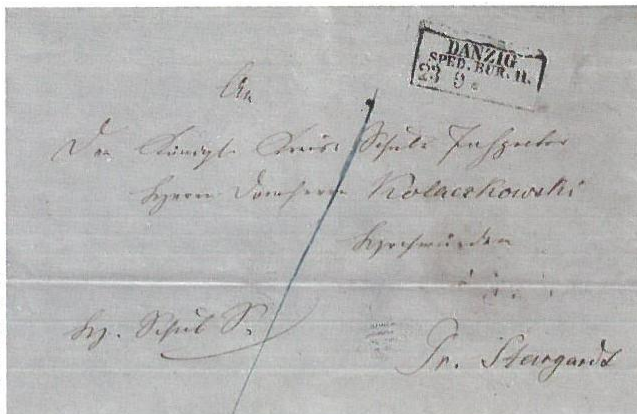 DANZIG
SPED. BUR. II.
23 9
An
Den Königl. Kreis Schul Inspector
Herrn Domherrn Kolaczkowski
Hochwürden
Pr. Stargardt
Schul S.